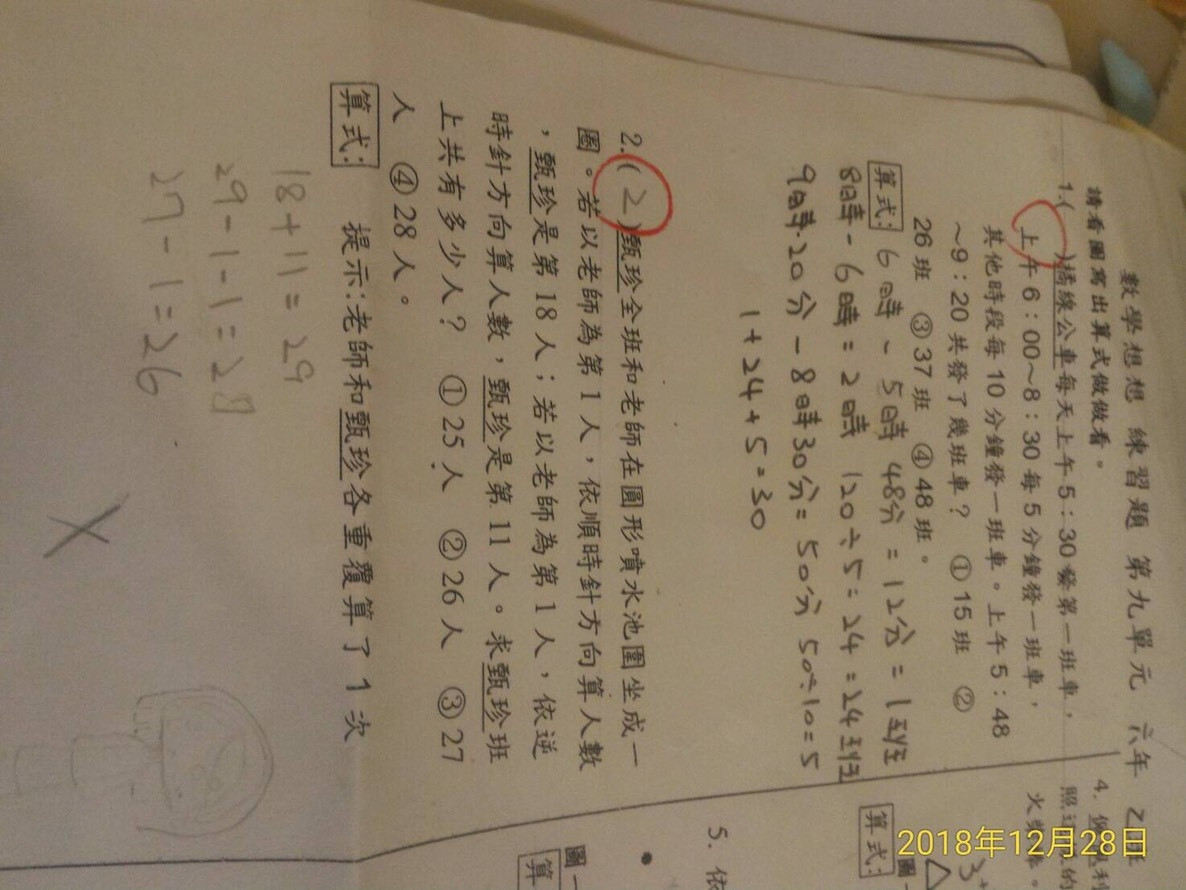 數學想想 練習題 第九單元 六年 乙班
請看圖寫出算式做做看。
1.( )橘線公車每天上午5:30發第一班車，
上午6:00~8:30每5分鐘發一班車，
其他時段每10分鐘發一班車。上午5:48
~9:20共發了幾班車? ①15班 ②
26班 ③37班 ④48班。
算式: 6時-5時48分=12分=1班
8時-6時=2時 120÷5=24=24班
9時20分-8時30分=50分 50÷10=5
1+24+5=30
2.(2)甄珍全班和老師在圓形噴水池圍坐成一
圈。若以老師為第1人，依順時針方向算人數
，甄珍是第18人；若以老師為第1人，依逆
時針方向算人數，甄珍是第11人。求甄珍班
上共有多少人? ①25人 ②26人 ③27
人 ④28人。
算式: 提示:老師和甄珍各重覆算了1次
18+11=29
29-1-1=27
27-1=26
4.
火
算式:
圖一
3+
5. 依
圖一
算
2018年12月28日